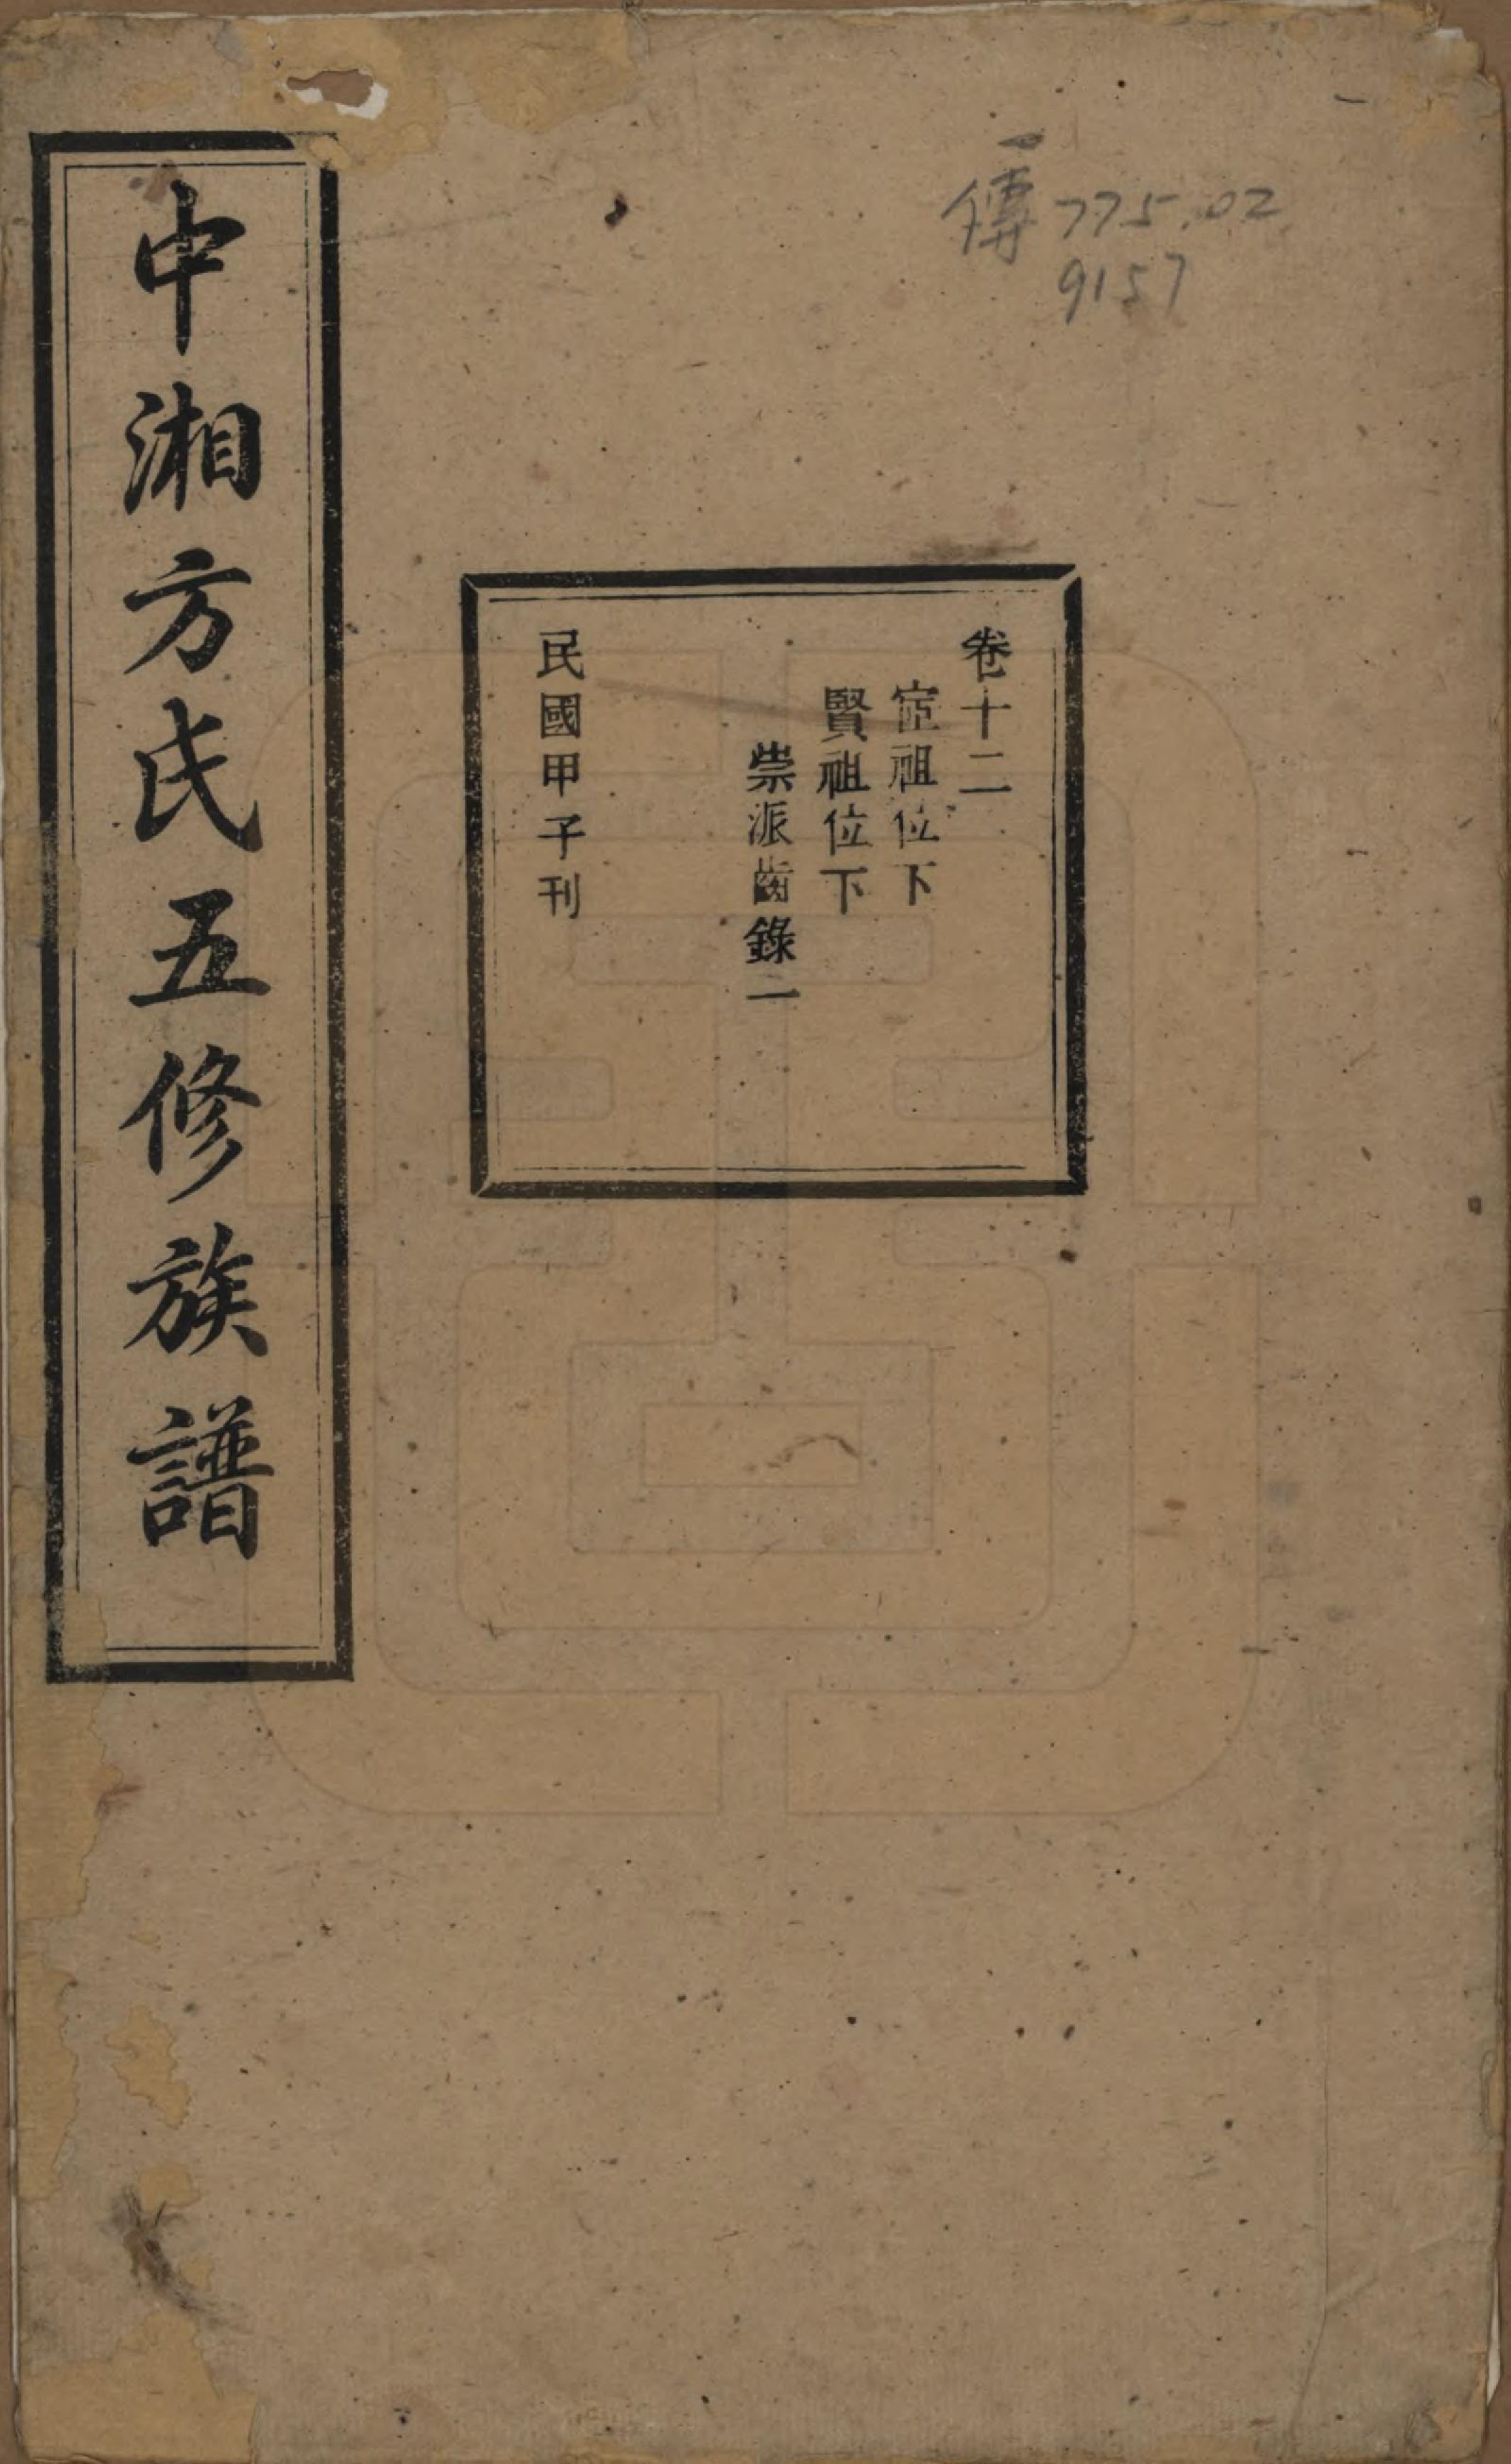 傳775.02
9157
卷十二
宦祖位下
賢祖位下
崇派齒錄二
民國甲子刊
中湘方氏五修族譜